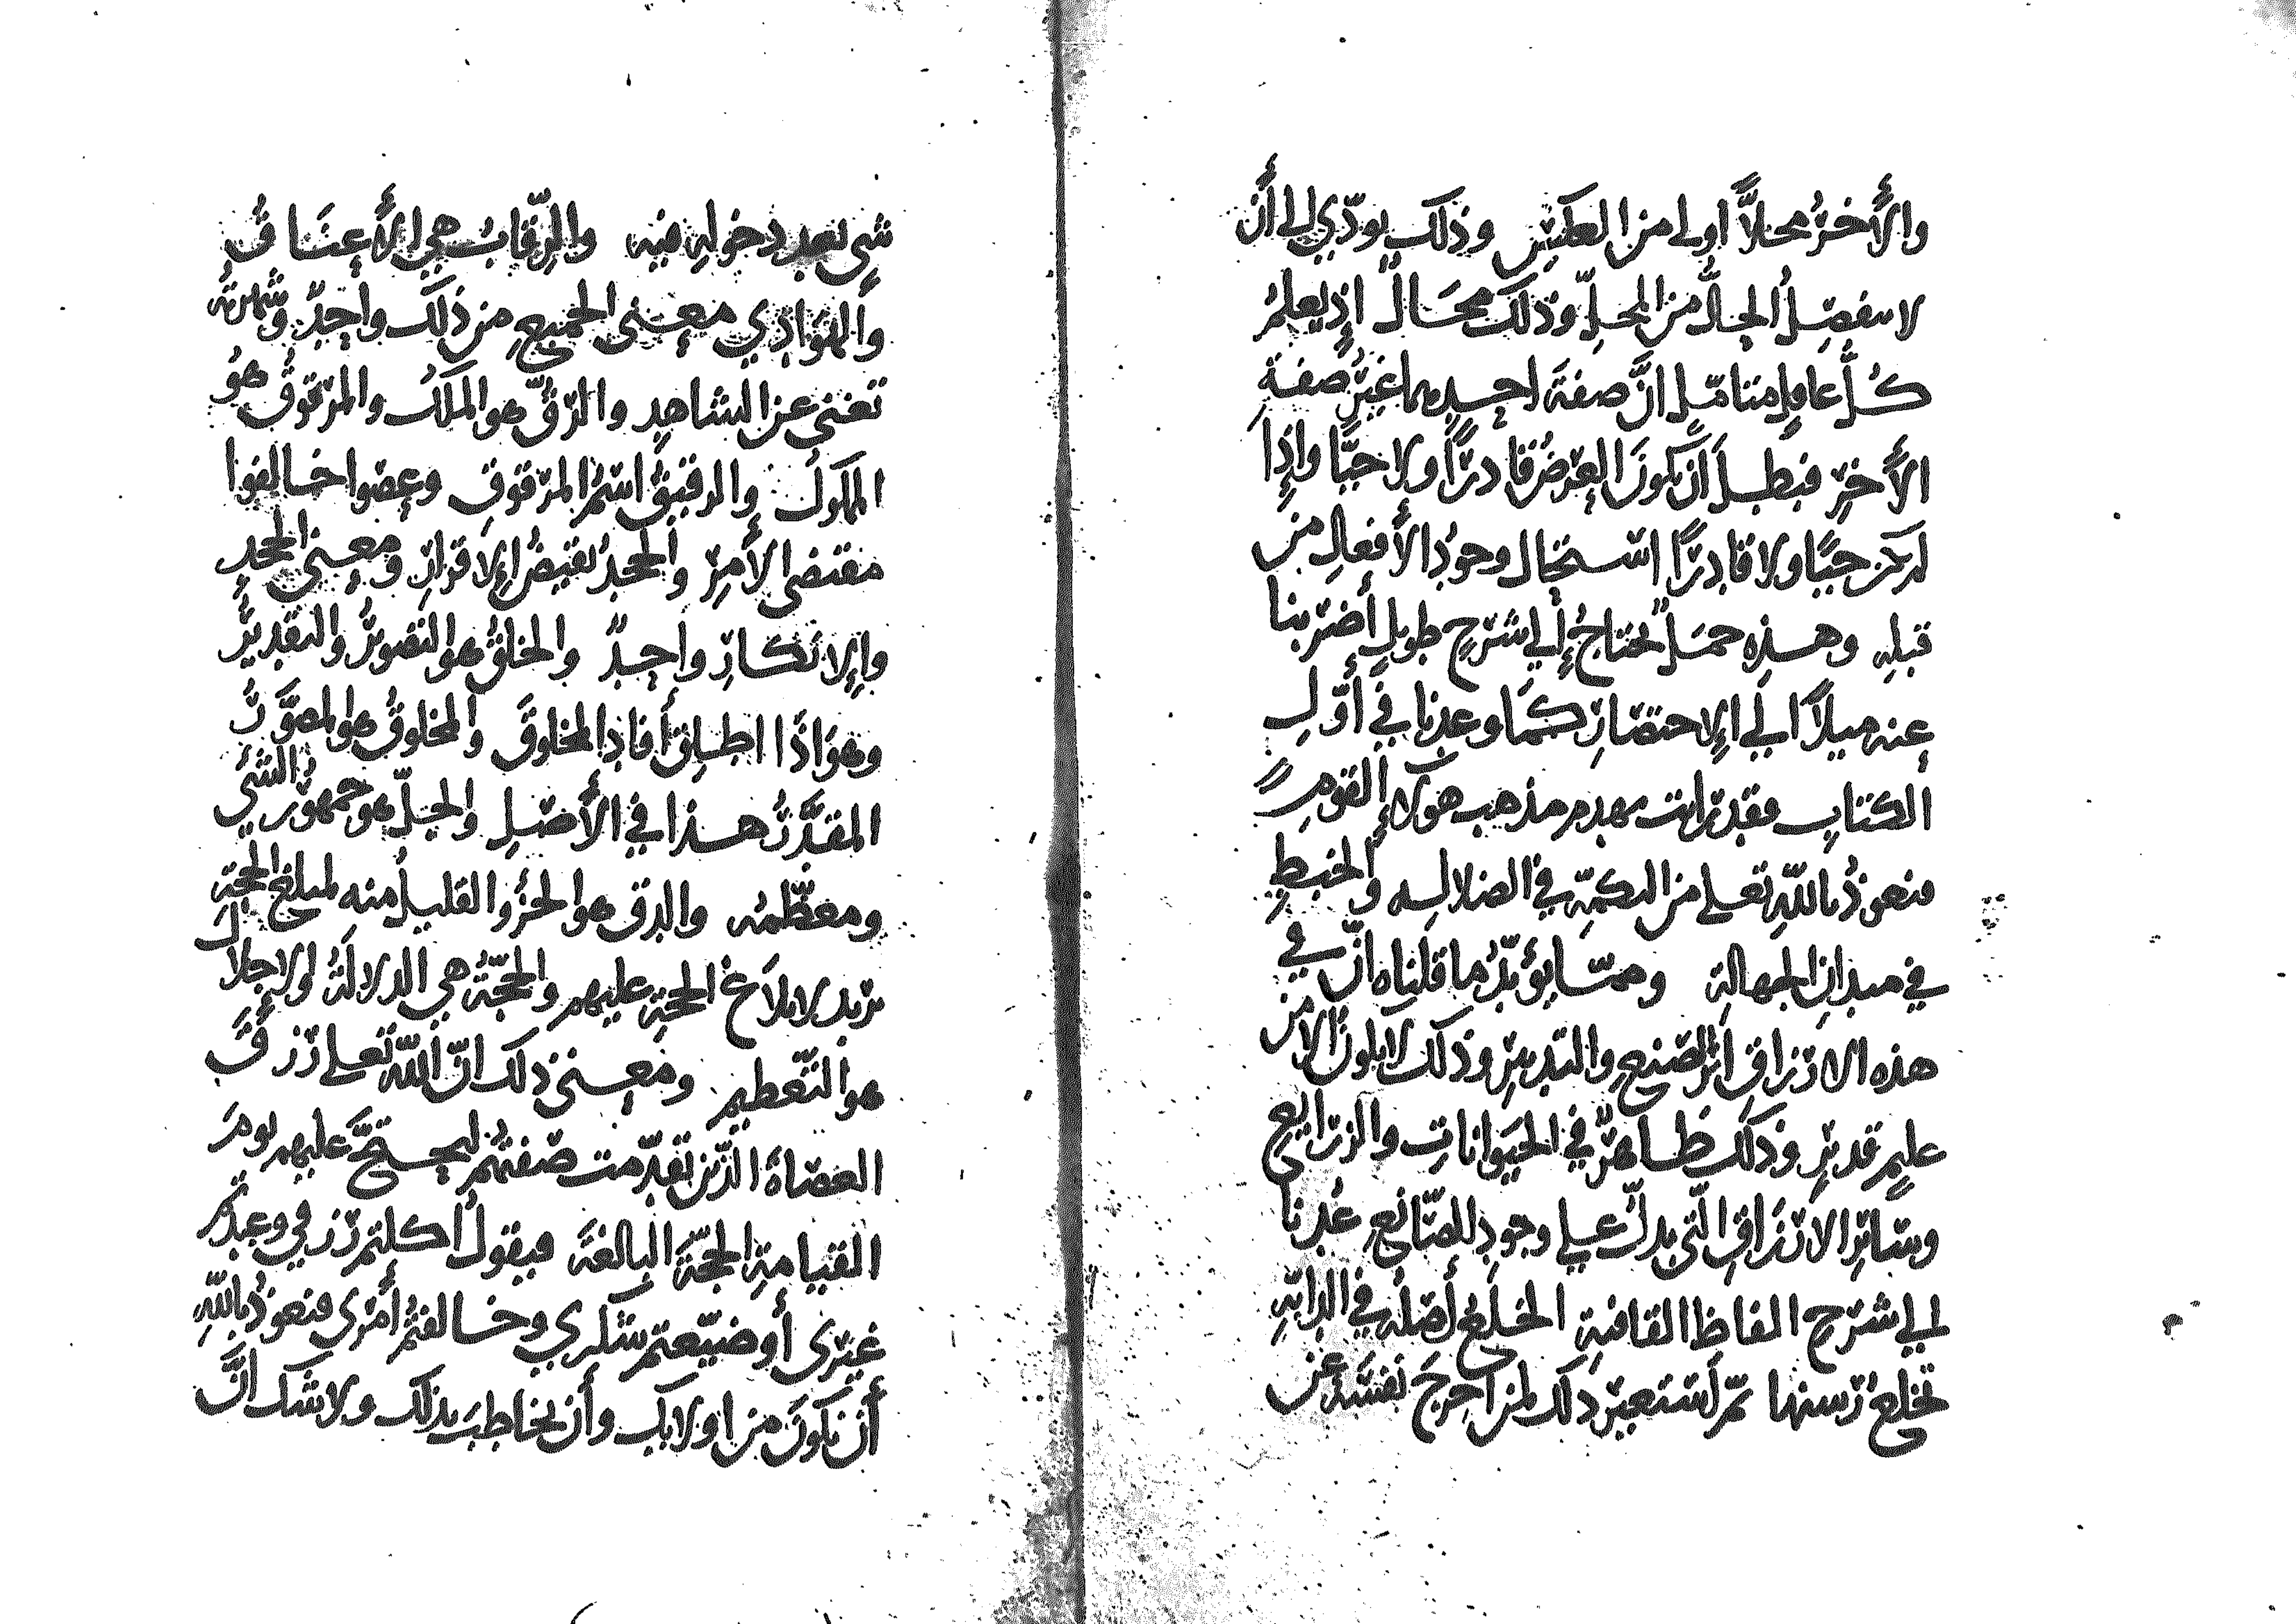 والأخرُ محلاًّ أولى من العكس وذلك يودّي إلى أن
لا ينفصلُ الحالُّ من المحلِّ وذلك محالٌ إذ يعلمُ
كلُّ عاقلٍ متأمّلٍ أنَّ صفةَ احدهما غيرُ صفةِ
الأخرِ فبطل أن يكونَ العرضُ قادرًا ولا حيًّا وإذا
لم يكن حيًّا ولا قادرًا استحال وجودُ الأفعالِ من
قبلهِ وهذه جملٌ تحتاجُ إلى شرحٍ طويلٍ أضربنا
عنه ميلاً إلى الإختصارِ كما وعدنا في أوّلِ
الكتابِ فقد رأيت بهدم مذهب هؤلاءِ القومِ
فنعوذُ باللهِ تعلى من التكمّهِ في الضلاله والخبطِ
في ميدانِ الجهالةِ وممّا يؤيّدُ ما قلناه أنّ في
هذه الارزاقِ أثرُ الصنعِ والتدبيرِ وذلك لا يكونُ إلا من
عليمٍ قديرٍ وذلك ظاهرٌ في الحيَواناتِ والزرايع
وسائرِ الارزاقِ الّتي يدلُّ على وجودِ الصّانعِ عُدنا
إلى شرحِ الفاظِ القافيةِ الخلعُ أصلهُ في الدابّةِ
تخلعُ رسنها ثمّ استعير ذلك لمن أخرجَ نفسَهُ عن
شيءٍ بعد دخولهِ فيه والرّقابُ هي الأعناقُ
والهَوَادِي معنى الجميعِ من ذلك واحدٌ وشهرتُه
تغني عن الشاهدِ والرّقُّ هو الملكُ والمرقوقُ هوُ
المملوك والرقيقُ اسمُ المرقوقِ وعصَوا خالفوا
مقتضى الأمرِ والجحدُ نقيضُ الإقرارِ ومعنى الجحدِ
والإنكارِ واحدٌ والخلقُ هو التصويرُ والتقديرُ
وهوَ اذَا اطلق أفاد المخلوقَ والمخلوقُ هو المصوَّرُ
المقدَّرُ هذا في الأصلِ والجلّ هو جمهورُ الشيءِ
ومعظّمُه والدق هو الجزُو القليلُ منه لمبلغ الحجّةِ
يريد لابلاَغِ الحجةِ عليهم والحجّةُ هي الدلالةُ والإجلالُ
هو التّعظيم ومعنى ذلك انّ اللّهَ تَعلى رَزقَ
العصاة الّذين تقدّمت صفتُهُم ليحتجَّ عليهم يومَ
القيامةِ الحجّةَ البالغةَ فيقول أكلتم رزقي وعبدتم
غيرِى أو ضيّعتم شكري وخالفتُم أمْرِى فنعوذُ باللهِ
أن نكونَ من أولايك وأن نخاطبَ بذلك ولا شك أنَّ